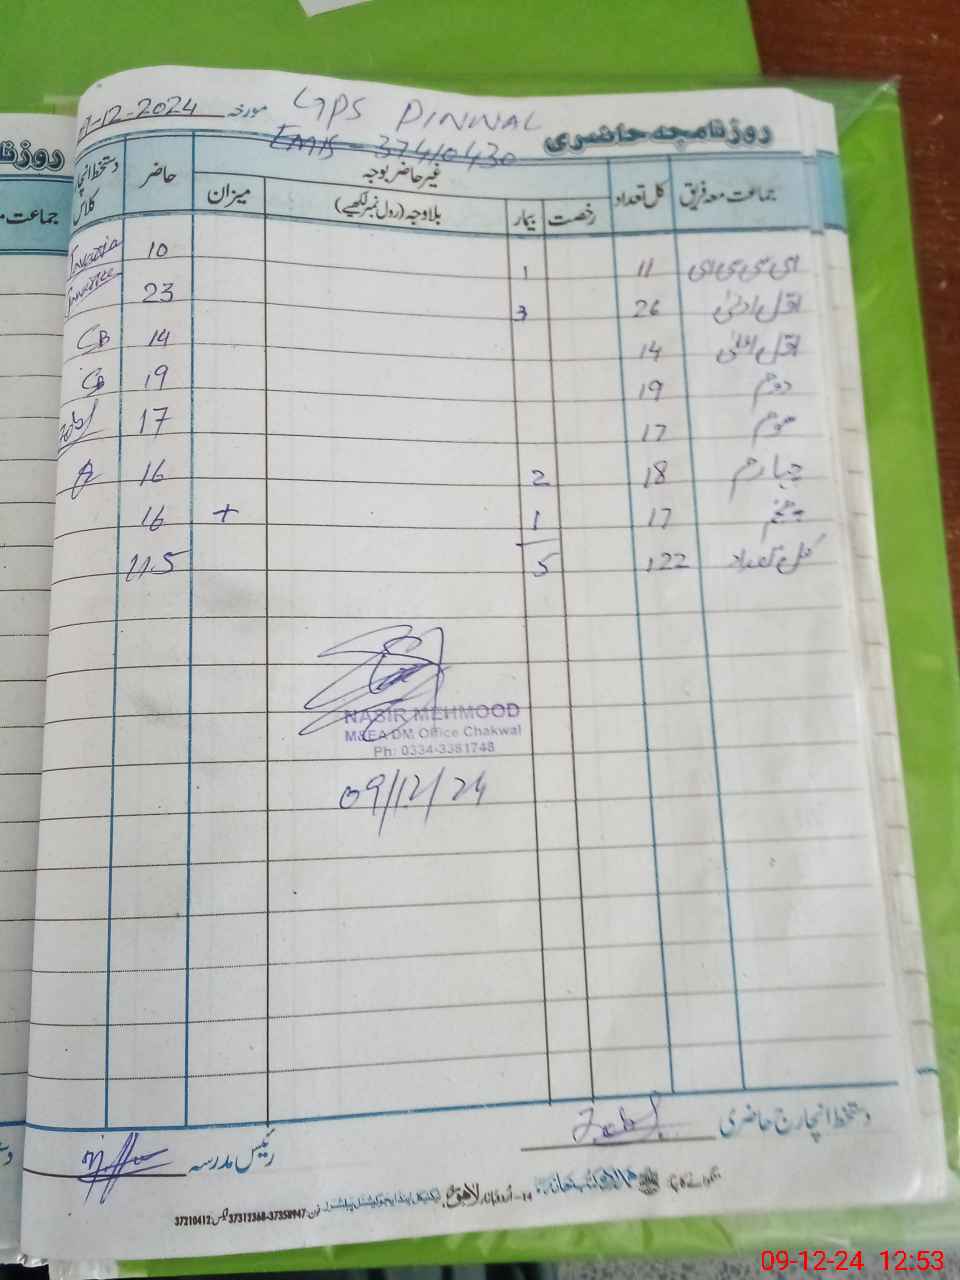 روزنامچہ حاضری
GPS PINWAL
مورخہ 07-12-2024
EMIS - 37410430
جماعت معہ فریق کل تعداد غیر حاضر بوجہ حاضر دستخط انچارج کلاس
رخصت بیمار بلاوجہ (رول نمبر لکھیے) میزان
ای سی سی ای 11 1 10
اول ادنیٰ 26 3 23
اول اعلیٰ 14 14 CB
دوم 19 19 CB
سوم 17 17
چہارم 18 2 16
پنجم 17 1 + 16
کل تعداد 122 5 115
NASIR MEHMOOD
M&EA DM Office Chakwal
Ph: 0334-3381748
09/12/24
دستخط انچارج حاضری
رئیس مدرسہ
37210412 فیکس 37312368-37358947 فون
روزنا
جماعت م
09-12-24 12:53